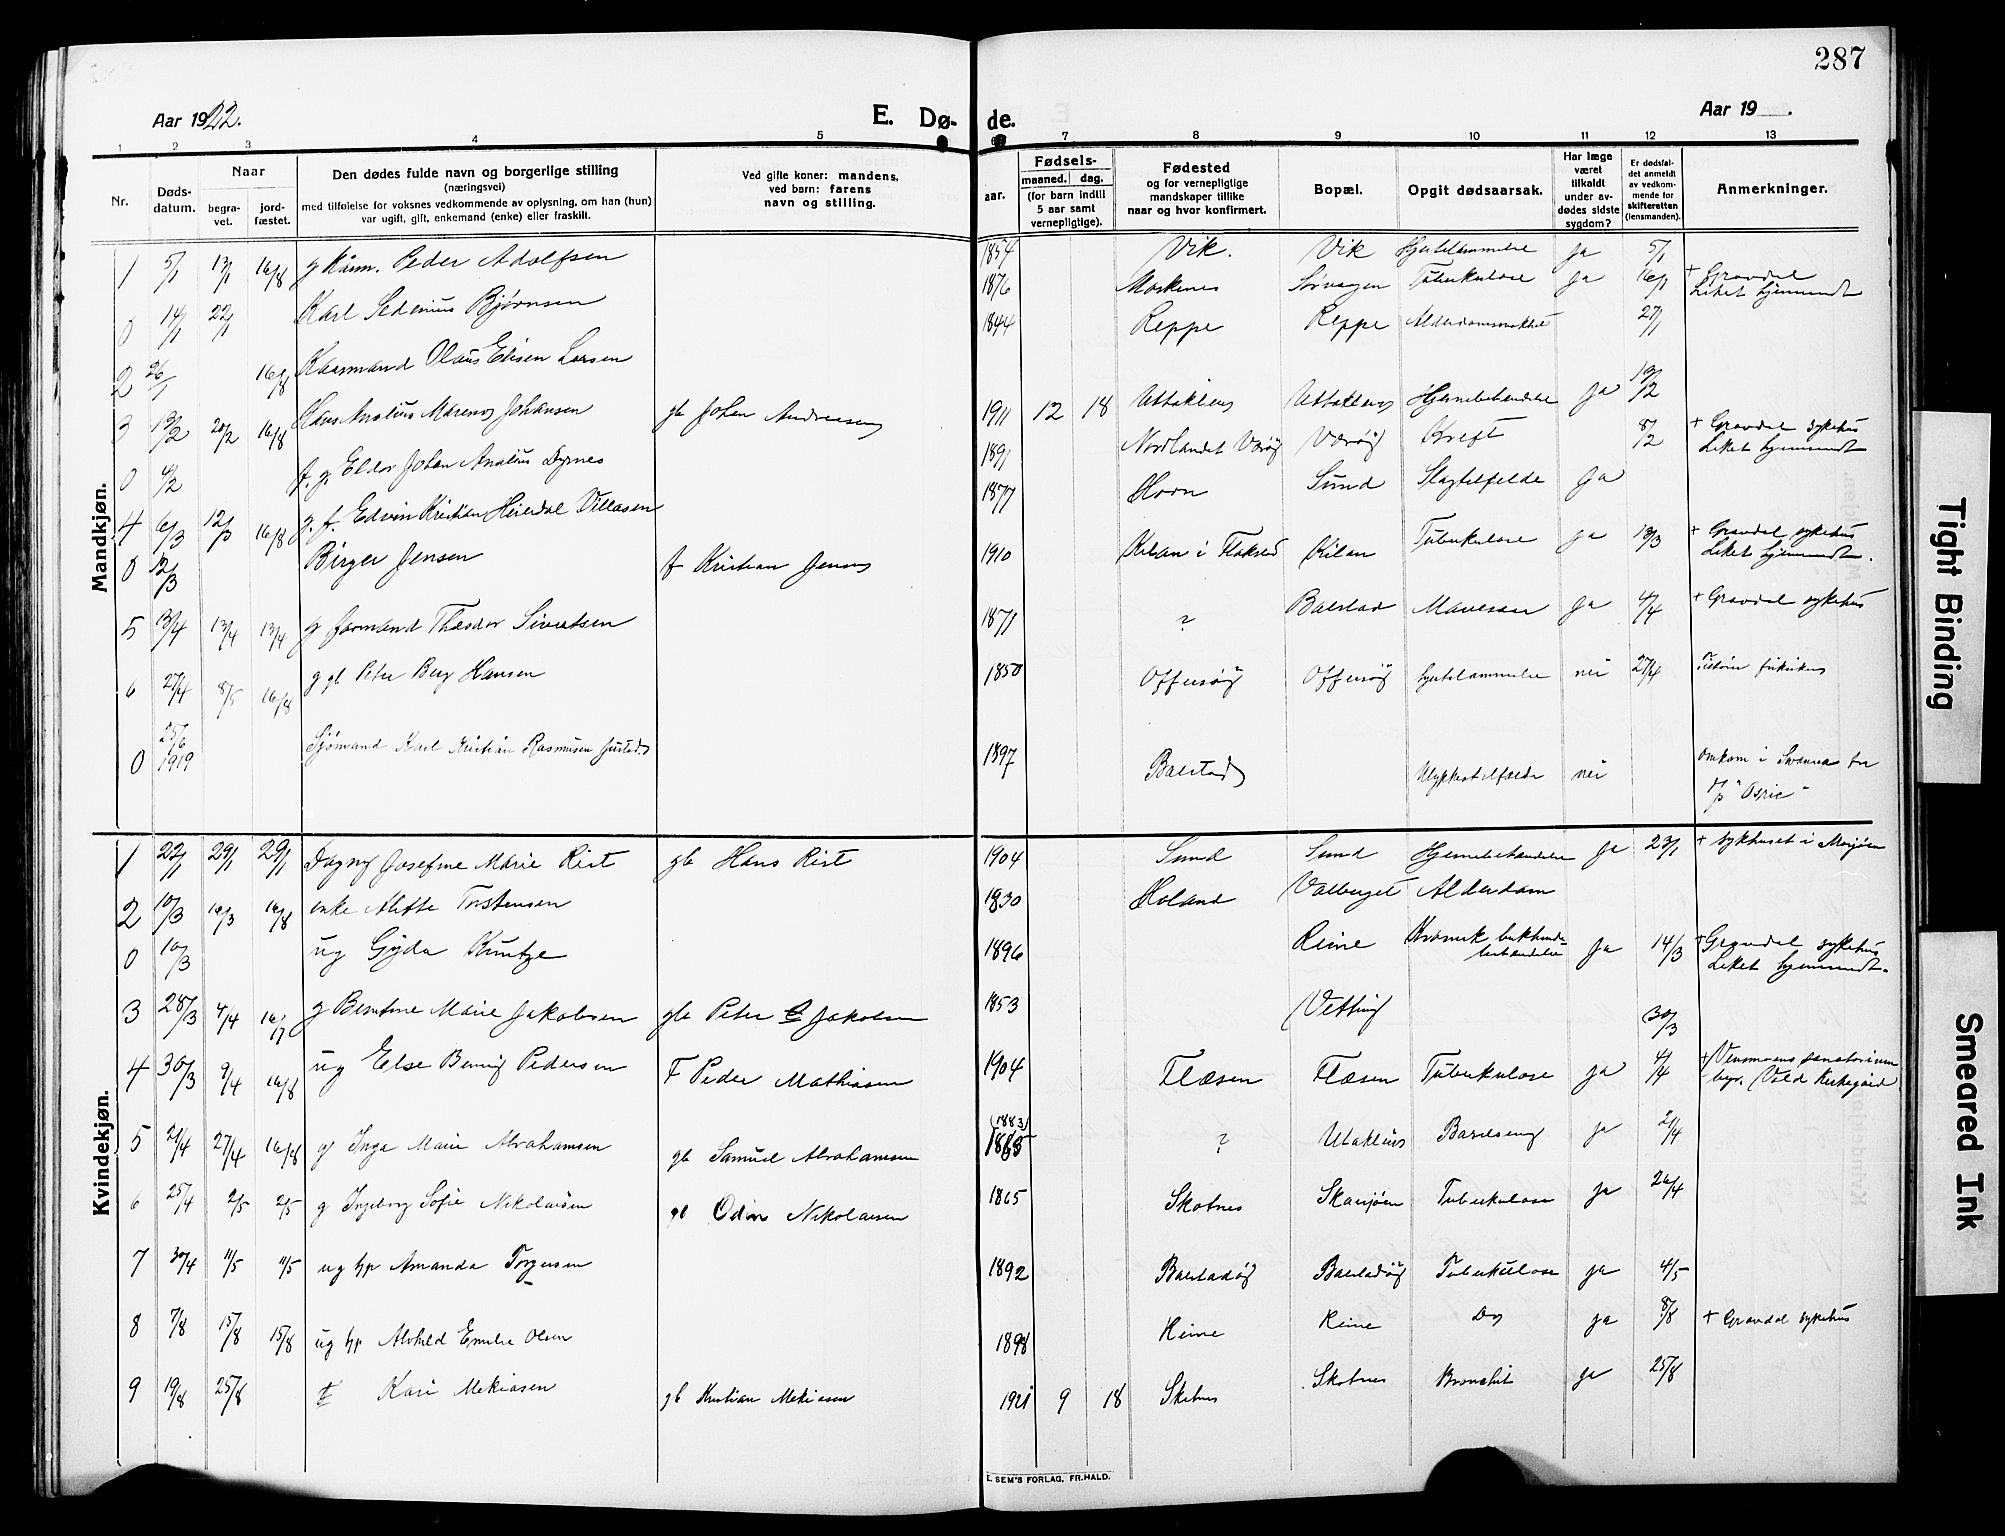 287
Aar 1922.
E. Dø-
de.
Aar 19 .
1 2 3 4 5 6 7 8 9 10 11 12 13
Nr.
Døds-
datum.
Naar
begra-
vet.
jord-
fæstet.
Den dødes fulde navn og borgerlige stilling
(næringsvei)
med tilføielse for voksnes vedkommende av oplysning, om han (hun)
var ugift, gift, enkemand (enke) eller fraskilt.
Ved gifte koner: mandens,
ved barn: farens
navn og stilling.
aar.
Fødsels-
maaned. dag.
(for barn indtil
5 aar samt
vernepligtige).
Fødested
og for vernepligtige
mandskaper tillike
naar og hvor konfirmert.
Bopæl.
Opgit dødsaarsak.
Har læge
været
tilkaldt
under av-
dødes sidste
sygdom?
Er dødsfal-
det anmeldt
av vedkom-
mende for
skifteretten
(lensmanden).
Anmerkninger.
Mandkjøn.
1 5/1 13/1 16/8 g Kårm. Peder Adolfsen 1854 Vik. Vik Hjertelammelse Ja 5/1
0 14/1 22/1 Karl Sedenius Bjørnsen 1876 Moskenes Sørvaagen Tuberkulose Ja 16/1 + Gravdal
Liket hjemsendt
2 26/1 16/8 Kaarmand Olaus Elisen Larsen 1844 Reppe Reppe 27/1
3 13/2 20/2 16/8 Hans Analius Marenus Johansen gb Johan Andreasen 1911 12 18 Uttakleiv Uttakleiv Hjernebetændelse Ja
0 4/2 f. g. Eldor Johan Analius Dyrnes 1891 Nordlandet Værøy Værøy Kreft 8/2 + Gravdal sykehus
Liket hjemsendt
4 6/3 12/3 16/8 g. f. Edvin Kristian Heierdal Villasen 1877 Horn Sund Slagtilfelde Ja
0 12/3 Birger Jensen f Kristian Jensen 1910 Kilan i Flakstad Kilan Tuberkulose Ja 13/3 + Gravdal sykehus
Liket hjemsendt.
5 13/4 13/4 g formand Theodor Sivertsen 1871 ? Balstad Mavesaar Ja 4/4 + Gravdal sykehus
6 27/4 8/5 16/8 g gb Peter Berg Hansen 1850 Offersøy Offersøy Hjertelammelse nei 27/4
0 25/6 1919 Sjømand Karl Kristian Rasmusen 1897 Balstad Ulykkestilfælde nei omkom i Swansea fra
D/S "Osric"
Kvindekjøn.
1 22/1 29/1 29/1 Dagny Josefine Marie Rist gb Hans Rist 1904 Sund Sund Hjernebetændelse Ja 23/1 + sykhuset i Mosjøen
2 10/3 16/3 16/8 enke Alette Torstensen 1830 Holand Valberget Alderdom
0 10/3 ug Gyda Kuntze 1896 Reine Kronisk bukhinde-
betændelse Ja 14/3 + Gravdal sykehus
Liket hjemsendt.
3 28/3 4/4 g Berntine Marie Jakobsen gb Peter Jakobsen 1853 Vetting 30/3
4 30/3 9/4 16/8 ug Else Benny Pedersen F Peder Mathiasen 1904 Flæsen Flæsen Tuberkulose ja 4/4 + Vensmoens sanatorium
begr. Vold Kirkegård
5 21/4 27/4 16/8 g Inga Marie Abrahamsen gb Samuel Abrahamsen (1883) ? Utakleiv Barselseng ja 21/4
6 25/4 2/5 2/5 g Ingeborg Sofie Nikolaisen gb Odin Nikolaisen 1865 Skotnes Skarsjøen Tuberkulose ja 26/4
7 30/4 11/5 11/5 ug hp Amanda Torgersen 1892 Balstadøy Balstadøy Tuberkulose ja 4/5
8 7/8 15/8 15/8 ug hp Alvhild Emelie Olsen 1898 Reine Reine Do ja 8/8 + Gravdal sykehus
9 19/8 25/8 Kari Mekiasen gb Kristian Mekiasen 1921 9 18 Skotnes Skotnes Bronchit ja 25/8
E. SEM'S FORLAG, FR.HALD.
Tight Binding
Smeared Ink